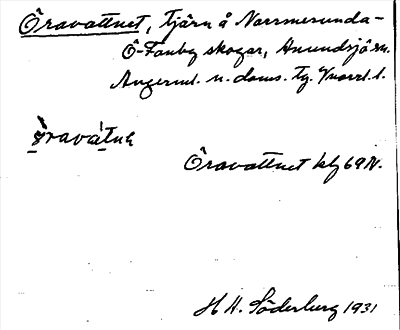 Öravattnet, tjärn å Norrmesunda-
Ö-Fanby skogar, Anundsjö sn.
Ångerml. n. doms. tg. Vnorrl. l.
Öravattnet kbl 69 N.
H H. Söderberg 1931